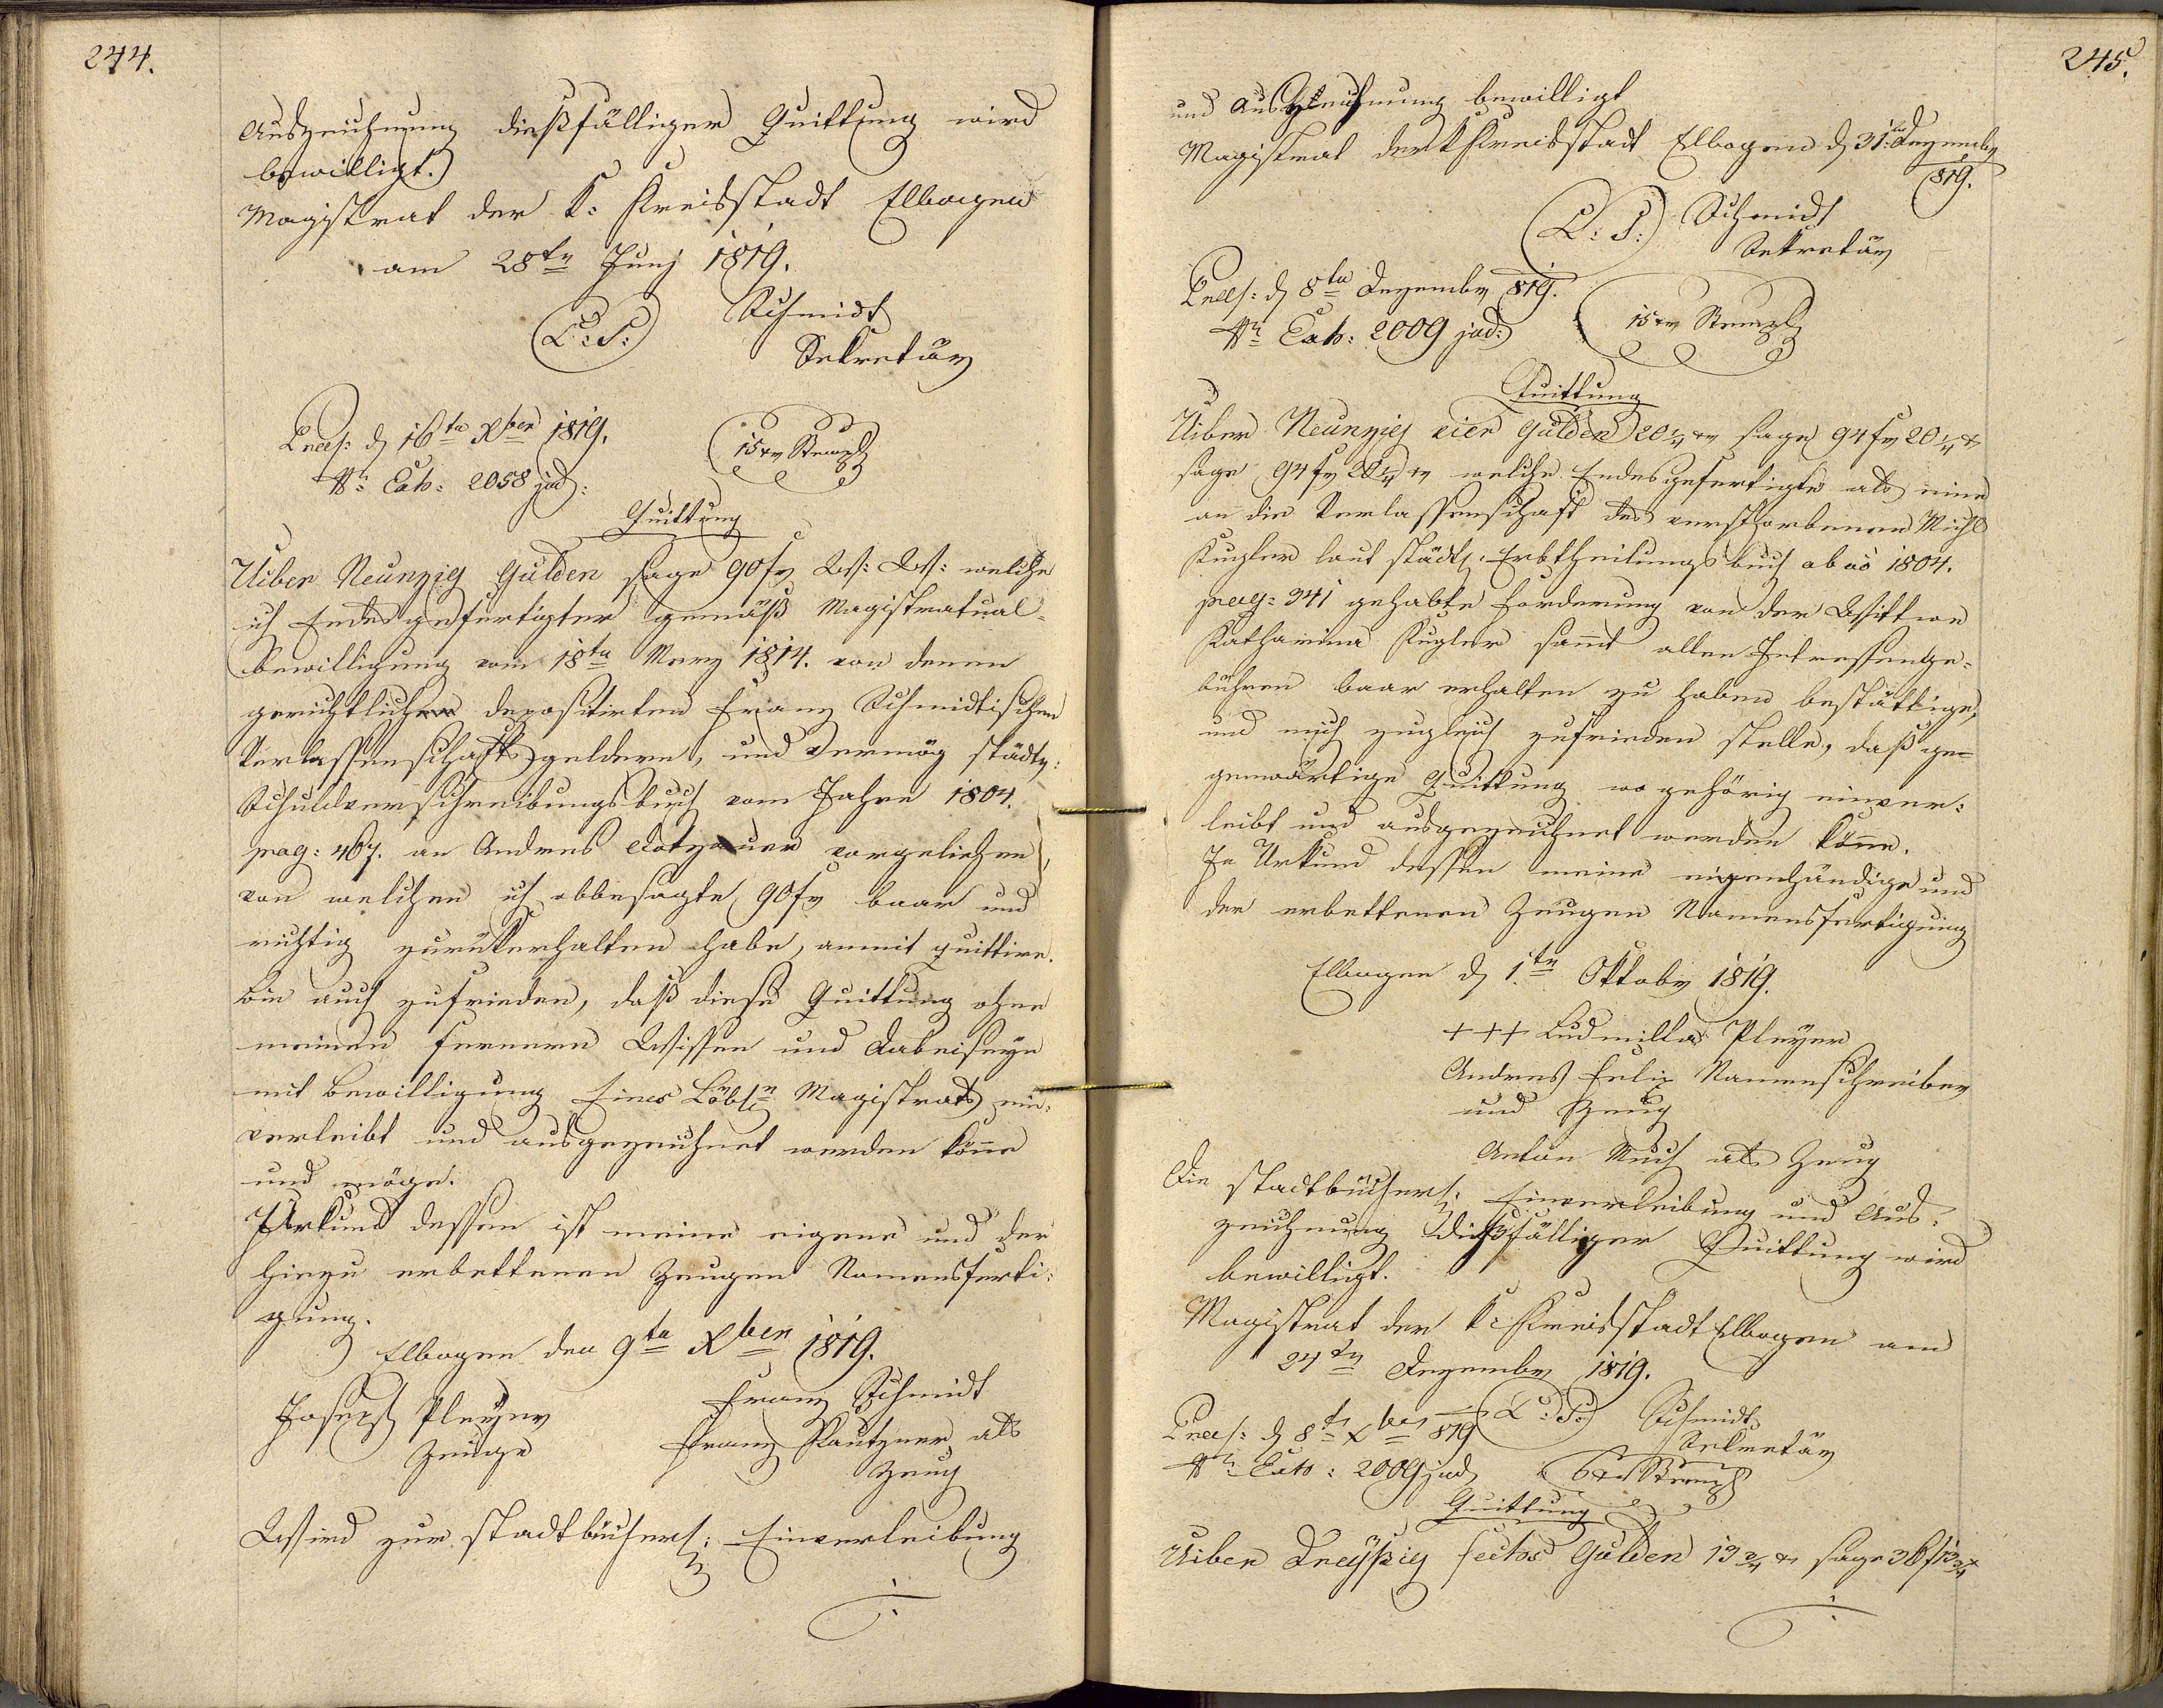 244.
Auszeichnung dießfälliger Quittung wird
bewilligt.
Magistrat der K: Kreisstadt Elbogen
am 28ten Junj 1819.
(L: S:) Schmidt
Sekretär
Praes: d 16ta Xber 1819.
Nr: Exh: 2058 jud:
15 xr Stempl
Quittung
Uiber Neunzig Gulden sage 90 fr W: W: welche
ich Endesgefertigter gemäß Magistratual-
bewilligung vom 18ten Merz 1814. von denen
gerichtlichen depositirten Franz Schmidtischen
Verlassenschaftsgeldern, und vermög städts:
Schuldverschreibungsbuch vom Jahre 1804.
pag: 467. an Andres Dotzauer vorgeliehen,
von welchen ich obbesagte 90 fr baar und
richtig zurückerhalten habe, anmit quittire.
Bin auch zufrieden, daß diese Quittung ohne
meinen fernern Wissen und Dabeiseyn
mit Bewilligung Eines Löbln Magistrats ein-
verleibt und ausgezeichnet werden könne
und möge.
Urkund dessen ist meine eigene und der
hiezu erbettenen Zeugen Namensferti-
gung.
Elbogen den 9ta Xber 1819.
Joseph Pleyer Franz Schmidt
Zeuge Franz als
Zeug
Wird zur stadtbücherl: Einverleibung
245.
und Auszeichnung bewilligt
Magistrat der K Kreisstadt Elbogen d 31: Dezember
819.
(L: S:) Schmidt
Sekretär
Praes: d 8ta Dezember 819.
Nr: Exh: 2009 jud:
15 xr Stempl
Quittung
Uiber Neunzig vier Gulden 20 1/4 xr sage 94 fr 20 1/4 x
sage 94 fr 20 1/4 xr welche Endesgefertigte als eine
an die Verlassenschaft des verstorbenen Michl
Kugler laut städts: Erbtheilungsbuch ab ao 1804.
pag: 341 gehabte Forderung von der Wittwe
Katharina Kugler samt allen Intressenge-
bühren baar erhalten zu haben bestättige,
und mich zugleich zufrieden stelle, daß ge-
genwärtige Quittung wo gehörig einver-
leibt und ausgezeichnet werden könne.
In Urkund dessen meine eigenhändige und
der erbettenen Zeugen Namensfertigung
Elbogen d 1ten Oktober 1819.
+++ Ludmilla Pleyer
Andres Felix Namenschreiber
und Zeug
Anton als Zeug
Die stadtbücherl: Einverleibung und Aus-
zeichnung dießfälliger Quittung wird
bewilligt.
Magistrat der K: Kreisstadt Elbogen am
24ten Dezember 1819.
(L: S:) Schmidt
Sekretär
Praes: d 8ta Xber 819
Nr: Exh: 2009 jud:
6 xr Stempl
Quittung
Uiber Dreyßig sechs Gulden 13 3/4 xr sage 36 f 13 3/4 x